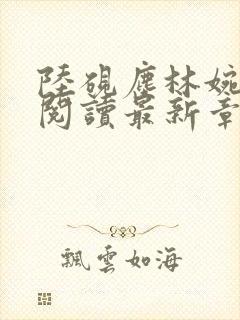 陸硯塵林婉
閱讀最新章
飄雲如海